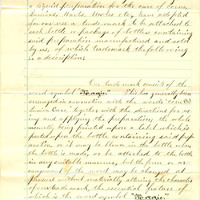 a liquid preparation for the cure of Corns
Bunions, Warts, Moles etc, have adopted
for our use a trade-mark to be attached to
each bottle or package of bottles containing
said preparation manufactured and sold
by us, of which trademark the following
is a description.
Our trade mark consists of the
word symbol "Magic". This has generally been
arranged in connection with the words "Corn
Cure", together with the directions for us-
ing and applying the preparation, the whole
usually being printed upon a label which is
pasted on the bottle containing said prepar-
ation or it may be blown in the bottle when
the bottle is made, or be attached to the bottle
in any suitable manner, but the form or ar-
rangement of the word may be changed at
pleasure without materially altering the character
of our trade mark, the essential feature of
which is the word symbol "Magic"